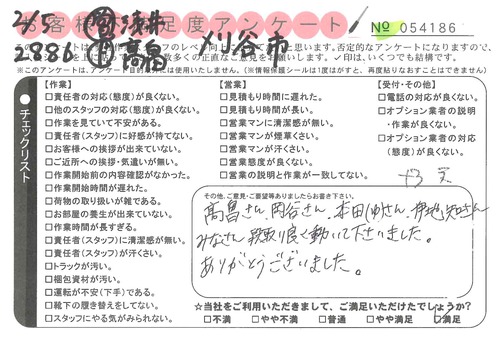 2/5 営 浅井 刈谷市
2886 高畠
お客様満足度アンケート
№ 054186
※このアンケートは、アンケート目的以外には使用いたしません。(情報保護シールは1度はがすと、再度貼りなおすことはできません)
チェックリスト
【作業】
□責任者の対応(態度)が良くない。
□他のスタッフの対応(態度)が良くない。
□作業を見ていて不安がある。
□責任者(スタッフ)に好感が持てない。
□お客様への挨拶が出来ていない。
□ご近所への挨拶・気遣いが無い。
□作業開始前の内容確認がなかった。
□作業開始時間が遅れた。
□荷物の取り扱いが雑である。
□お部屋の養生が出来ていない。
□作業時間が長すぎる。
□責任者(スタッフ)に清潔感が無い。
□責任者(スタッフ)が汗くさい。
□トラックが汚い。
□梱包資材が汚い。
□運転が不安(下手)である。
□靴下の履き替えをしてない。
□スタッフにやる気がみられない。
【営業】
□見積もり時間に遅れた。
□見積もり時間が長い。
□営業マンに清潔感が無い。
□営業マンが煙草くさい。
□営業マンが汗くさい。
□営業態度が良くない。
□営業の説明と作業が一致してない。
【受付・その他】
□電話の対応が良くない。
□オプション業者の説明・作業が良くない。
□オプション業者の対応(態度)が良くない。
その他、ご意見・ご要望等ありましたらお書き下さい。
高畠さん、岡谷さん、本田(ゆ)さん、
みなさん段取り良く動いて下さいました。
ありがとうございました。
☆当社をご利用いただきまして、ご満足いただけたでしょうか?
□不満 □やや不満 □普通 □やや満足 □満足